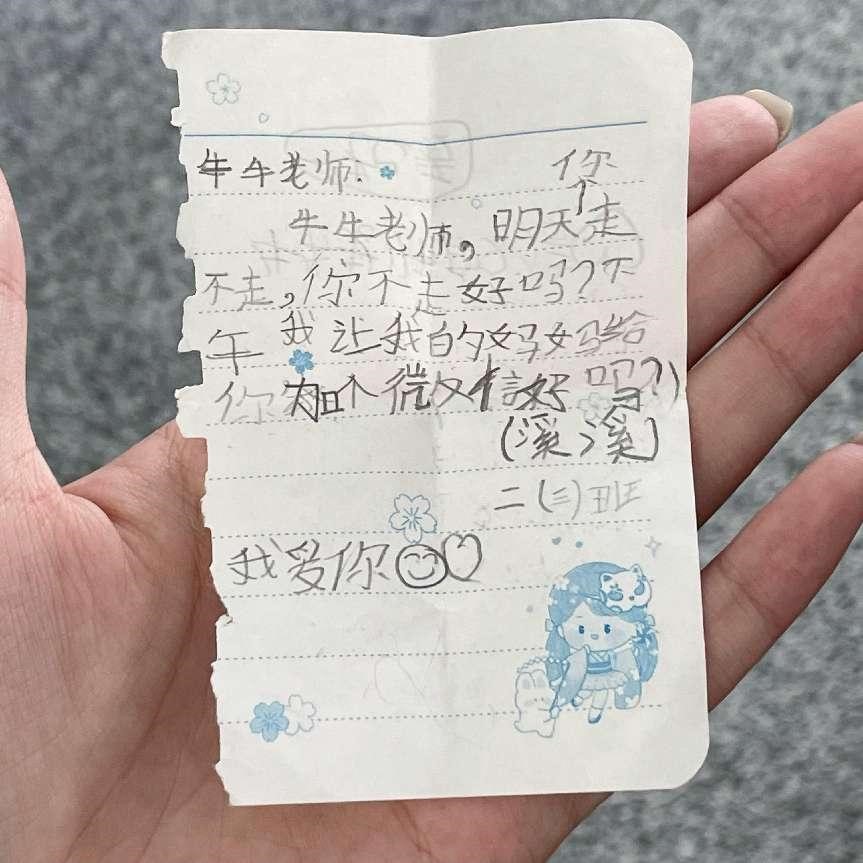 牛牛老师:
牛牛老师,明天你走
不走,你不走好吗?下
午我让我的妈妈给
你加个微信好吗?)
(溪溪)
二(三)班
我爱你